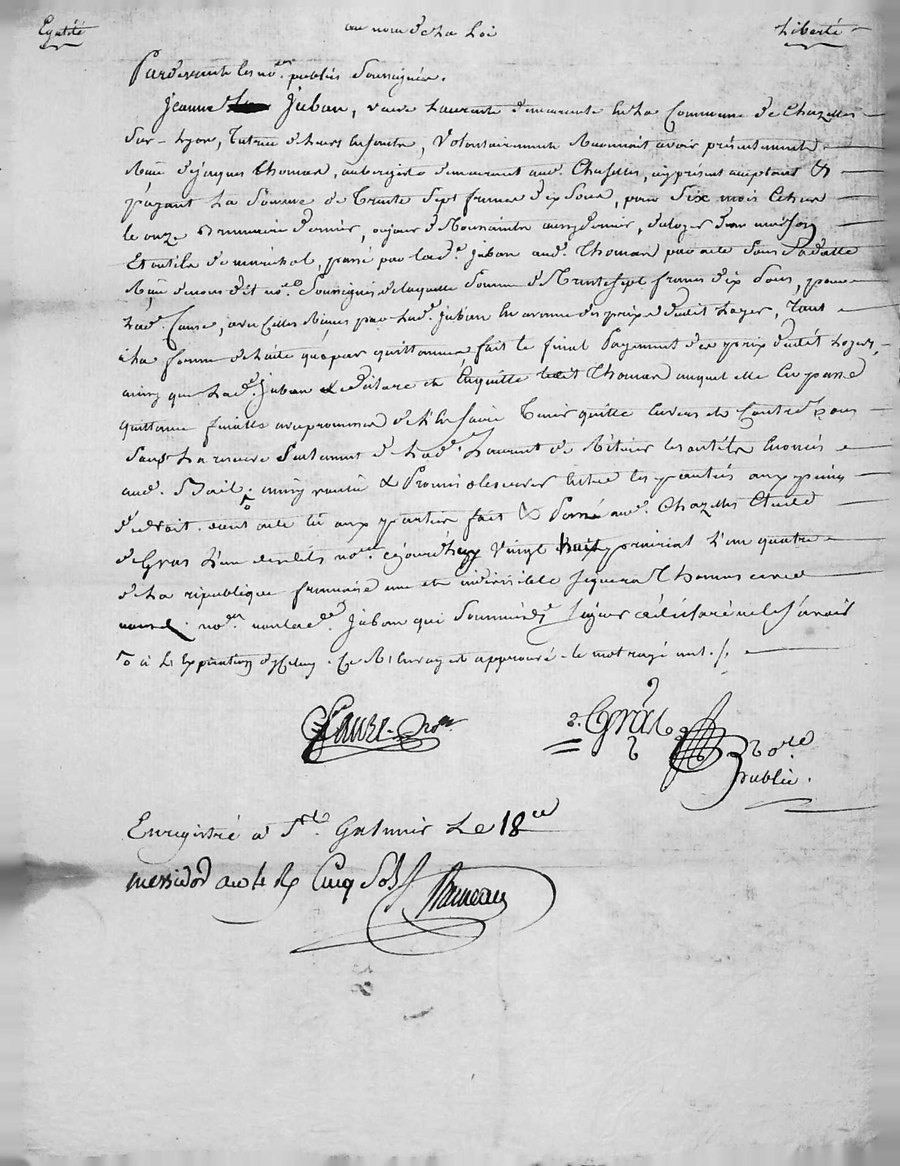 Egalité au nom de La Loi Liberté
Pardevant les no.res publics Soussignés.
Jeanne Juban, veuve Laurent demeurante en La Commune de Chazelles
Sur-Lyon, Tutrice de leurs enfants, Volontairement Reconnoit avoir présentement
Reçu de jacques Thomas, aubergiste demeurant aud. Chazelles, icy present acceptant &
payant La Somme de Trente Sept francs dix Sous, pour Six mois échus
le onze Brumaire dernier, du Loyer d'un maison
Et outils de maréchal, passé par lad.e Juban aud. Thomas par acte
Reçu de nous dit no.re Soussigné de laquelle Somme de Trente sept francs dix Sous, pour
Lad. Cause, avec Celles Reçues par Lad. Juban du prix dudit Loyer, Tant
à la forme que par quittances fait le final payement du prix dudit Loyer,
ainsy que Lad.e Juban le déclare et En quitte ledit Thomas auquel elle En passe
quittance finalle avec promesse de l'En faire Tenir quitte Envers et Contre Tous
Sauf La reserve de Lad.e Laurent de Retirer les outils Enoncés
aud. Bail. ainsy promis observer Entre les parties aux peines
de droit. dont acte lû aux parties fait & Passé aud. Chazelles Etude
de Gras L'un desdits no.res cejourd'huy Vingt huit prairial L'an quatre
de La république française une et indivisible Signera Thomas avec
no.res non lad.e Juban qui Sommée de Signer a déclaré ne le Savoir
à L'Expiration d'Iceluy. Ce Renvoy est approuvé. le mot rayé nul ./.
Faure no.re
Gras no.re
public.
Enregistré à S.t Galmier Le 18
messidor an 4 R Cinq Sols
Rameau